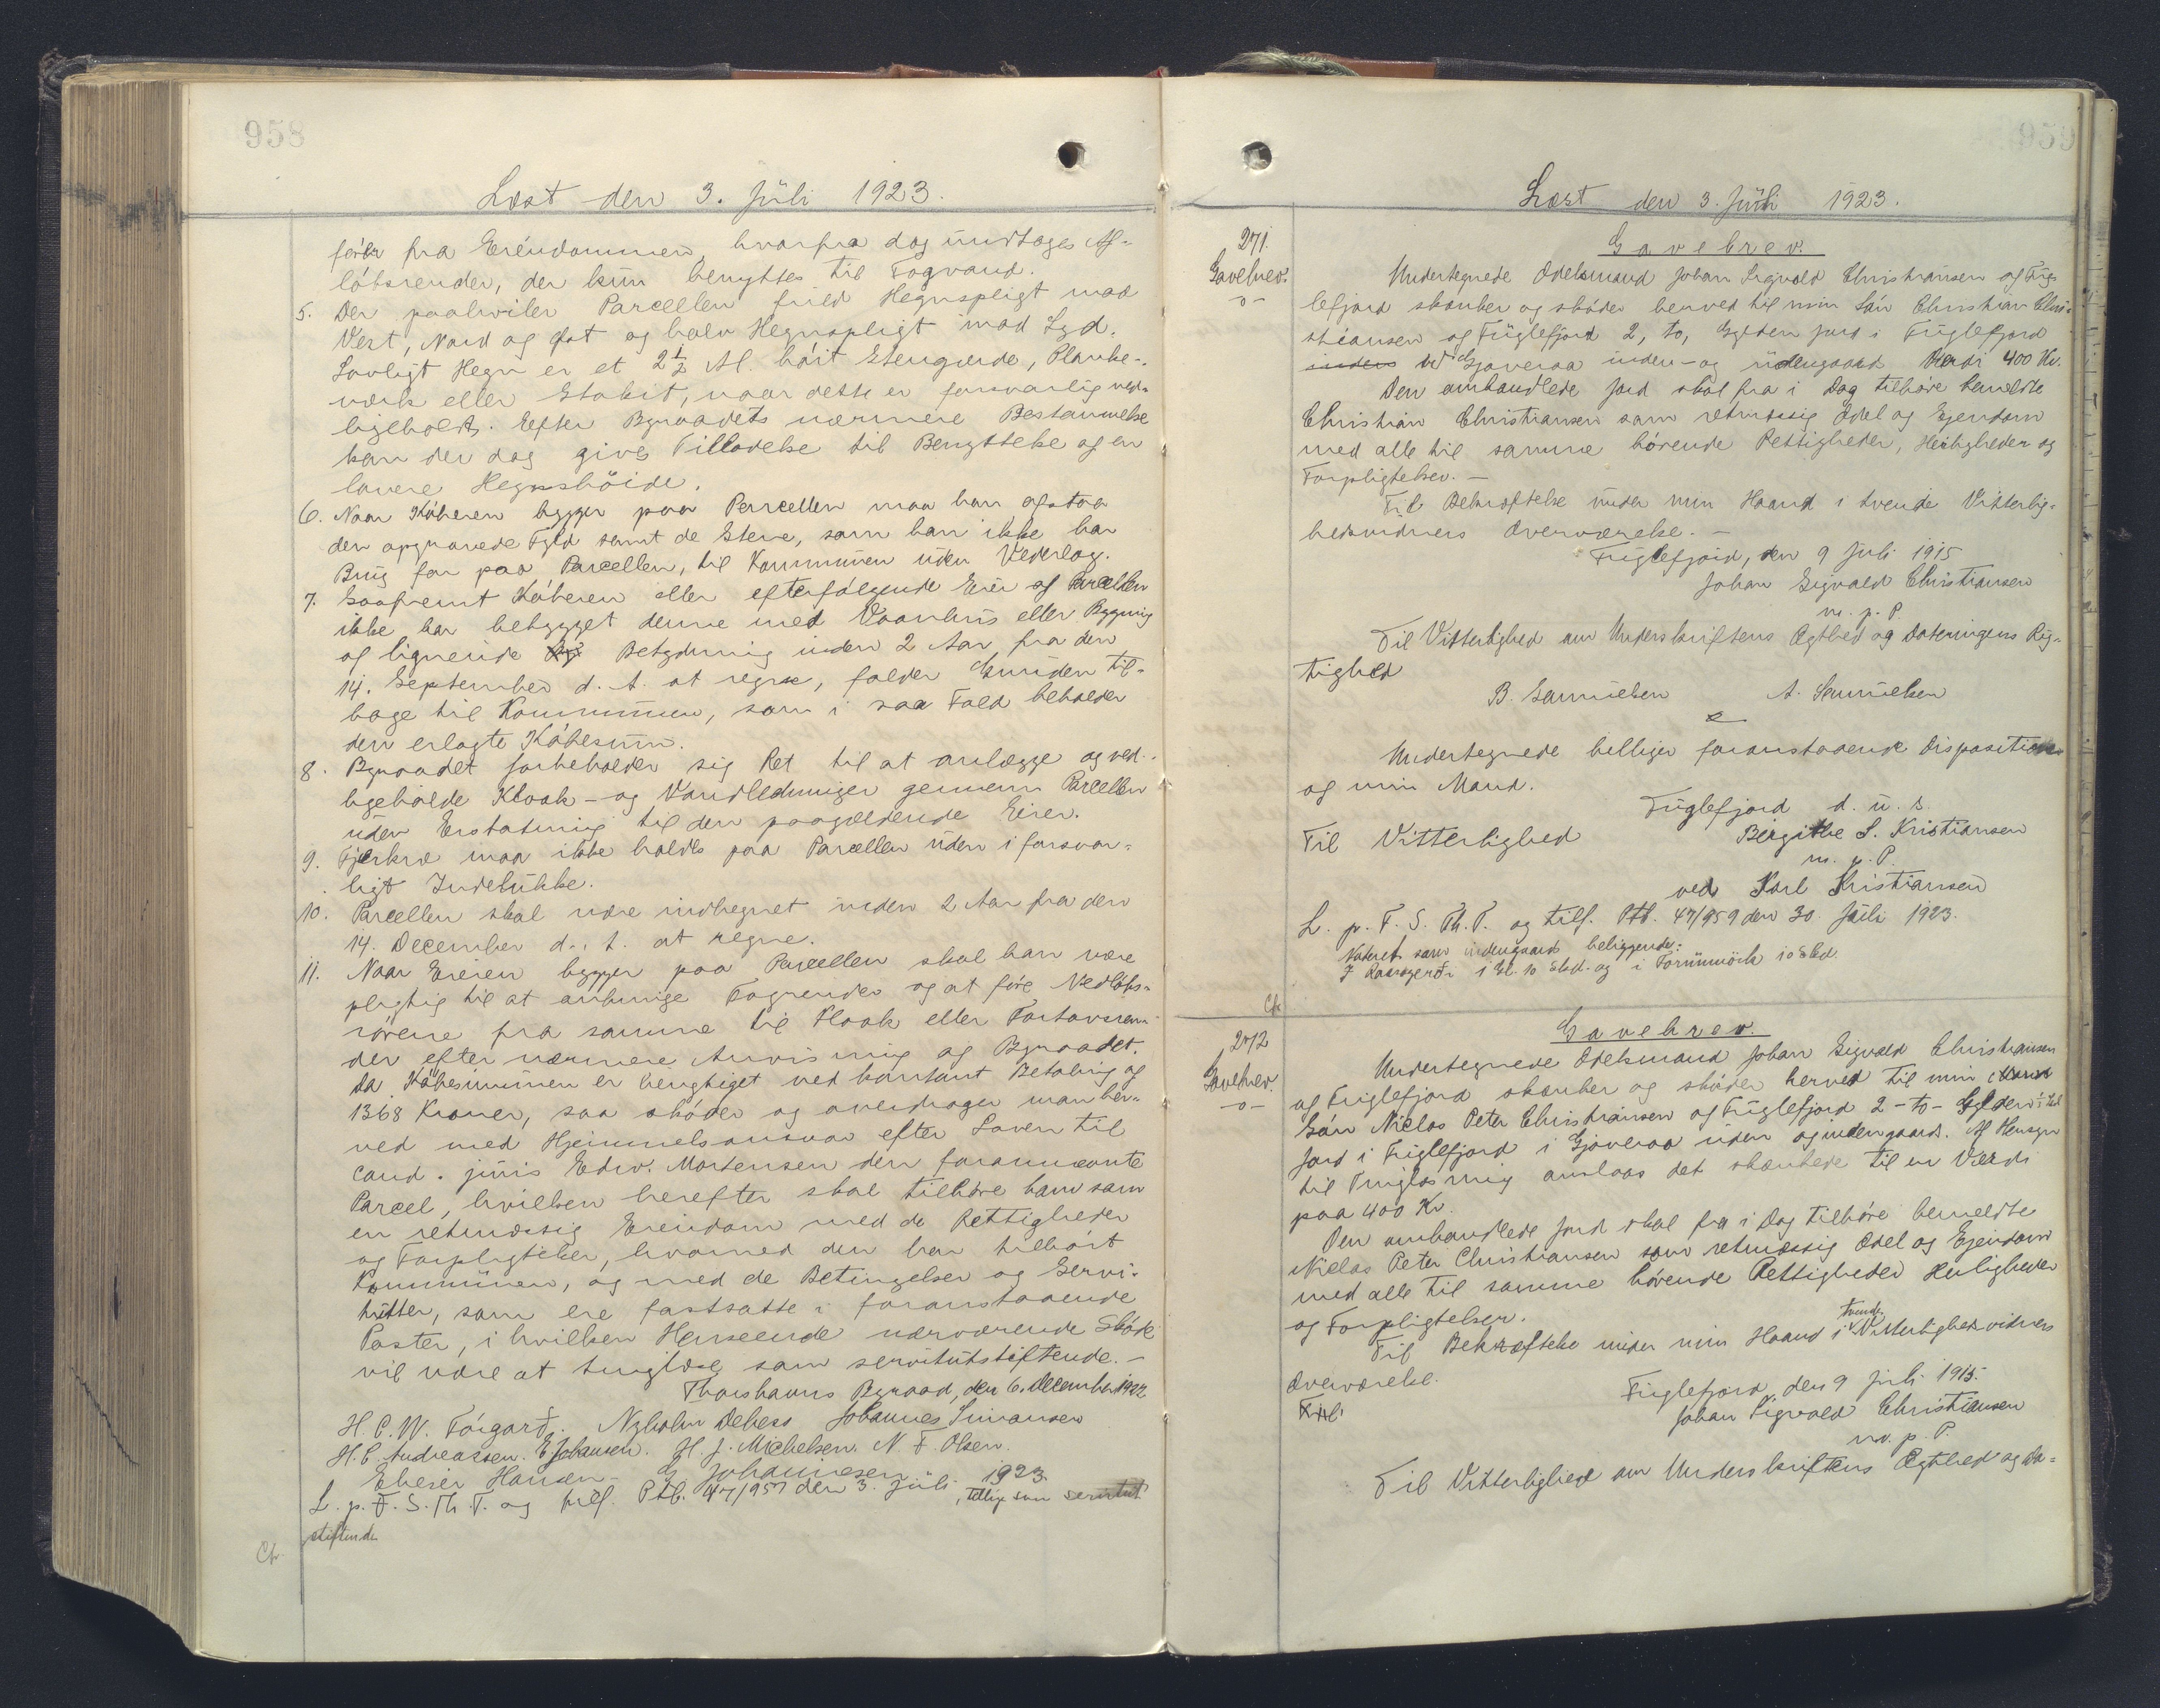 958
Læst den 3. Juli 1923.
fører fra Ereindommen, hvorfra dog undtages Af-
løbsrender, der kun benyttes til Tagvand.
5. Der paahviler Parcellen fuld Hegnspligt mod
Vest, Nord og Øst og halv Hegnspligt mod Syd.
Lovligt Hegn er et 2½ Al. høit Stengærde, Planke-
værk eller Stakit, naar dette er forsvarlig ved-
ligeholdt. Efter Byraadets nærmere Bestemmelse
kan der dog gives Tilladelse til Benyttelse af en
lavere Hegnshöide.
6. Naar Køberen bygger paa Parcellen maa han afstaa
den opgravede Fyld samt de Stene, som han ikke har
Brug for paa Parcellen, til Kommunen uden Vederlag.
7. Saafremt Køberen eller efterfølgende Eier af Parcellen
ikke har bebygget denne med Vaanhus eller Bygning
af lignende Betydning inden 2 Aar fra den
14. September d. A. at regne, falder Grunden til-
bage til Kommunen, som i saa Fald beholder
den erlagte Købesum.
8. Byraadet forbeholder sig Ret til at anlægge og ved-
ligeholde Kloak- og Vandledninger gennem Parcellen
uden Erstatning til den paagældende Eier.
9. Fjerkræ maa ikke holdes paa Parcellen uden i forsvar-
ligt Indelukke.
10. Parcellen skal være indhegnet inden 2 Aar fra den
14. December d. A. at regne.
11. Naar Eieren bygger paa Parcellen skal han være
pligtig til at anbringe Tagrender og at føre Nedløbs-
rørene fra samme til Kloak eller Fortovsren-
der efter nærmere Anvisning af Byraadet.
Da Købesummen er berigtiget ved kontant Betaling af
1368 Kroner, saa skøder og overdrager man her-
ved med Hjemmelsansvar efter Loven til
cand. juris Edw. Mortensen den forannævnte
Parcel, hvilken herefter skal tilhøre ham som
en retmæssig Ereindom med de Rettigheder
og Forpligtelser, hvormed den har tilhørt
Kommunen, og med de Betingelser og Servi-
tutter, som ere fastsatte i foranstaaende
Poster, i hvilken Henseende nærværende Skøde
vil være at tinglæse som servitutstiftende.-
Thorshavns Byraad, den 6. December 1922.
H. C. W. Tórgarð. Nyholm Debess Johannes Simonsen
H. C. Andreassen. E. Johansen. H. J. Michelsen. N. F. Olsen.
Elieser Hansen- G. Johannesen
L. p. F. S. Th. T. og tilf. Ptb. 47/957 den 3. Juli 1923, tillige som servitut
stiftende
Cfr.
959
Læst den 3. Juli 1923.
271.
Gavebrev.
-o-
Gavebrev.
Undertegnede Odelsmand Johan Sigvald Christiansen af Fug-
lefjord skænker og skøder herved til min Søn Christian Chri-
stiansen af Fuglefjord 2, to, Gylden Jord i Fuglefjord
inden ved Gjoveraa inden- og udengaard Værdi 400 Kr.
Den omhandlede Jord skal fra i Dag tilhøre bemeldte
Christian Christiansen som retmæssig Odel og Ejendom
med alle til samme hørende Rettigheder, Herligheder og
Forpligtelser. -
Til Bekræftelse under min Haand i tvende Vitterlig-
hedsvidners Overværelse. -
Fuglefjord, den 9 Juli 1915
Johan Sigvald Christiansen
m. p. P.
Til Vitterlighed om Underskriftens Ægthed og Dateringens Rig-
tighed
B. Samuelsen A. Samuelsen
Undertegnede billiger foranstaaende Disposition
af min Mand.
Fuglefjord d. u. s.
Til Vitterlighed Birgithe S. Kristiansen
m. p. P.
ved Karl Kristiansen
L. p. F. S. Th. T. og tilf. Ptb. 47/959 den 30. Juli 1923.
Noteret som indengaards beliggende:
Cfr.
272
Gavebrev.
-o-
Gavebrev.
Undertegnede Odelsmand Johan Sigvald Christiansen
af Fuglefjord skænker og skøder herved til min
Søn Niclas Peter Christiansen af Fuglefjord 2 - to - Gylden
Jord i Fuglefjord i Gjoveraa uden og inden gaards. Af Hensyn
til Tinglæsning anslaas det skænkede til en Værdi
paa 400 Kr.
Den omhandlede Jord skal fra i Dag tilhøre bemeldte
Niclas Peter Christiansen som retmæssig Odel og Ejendom
med alle til samme hørende Rettigheder Herligheder
og Forpligtelser.
Til Bekræftelse under min Haand i tvende Vitterlighedsvidners
Overværelse.
Fuglefjord, den 9 Juli 1915.
Til
Johan Sigvald Christiansen
m. p. P.
Til Vitterlighed om Underskriftens Ægthed og Da-